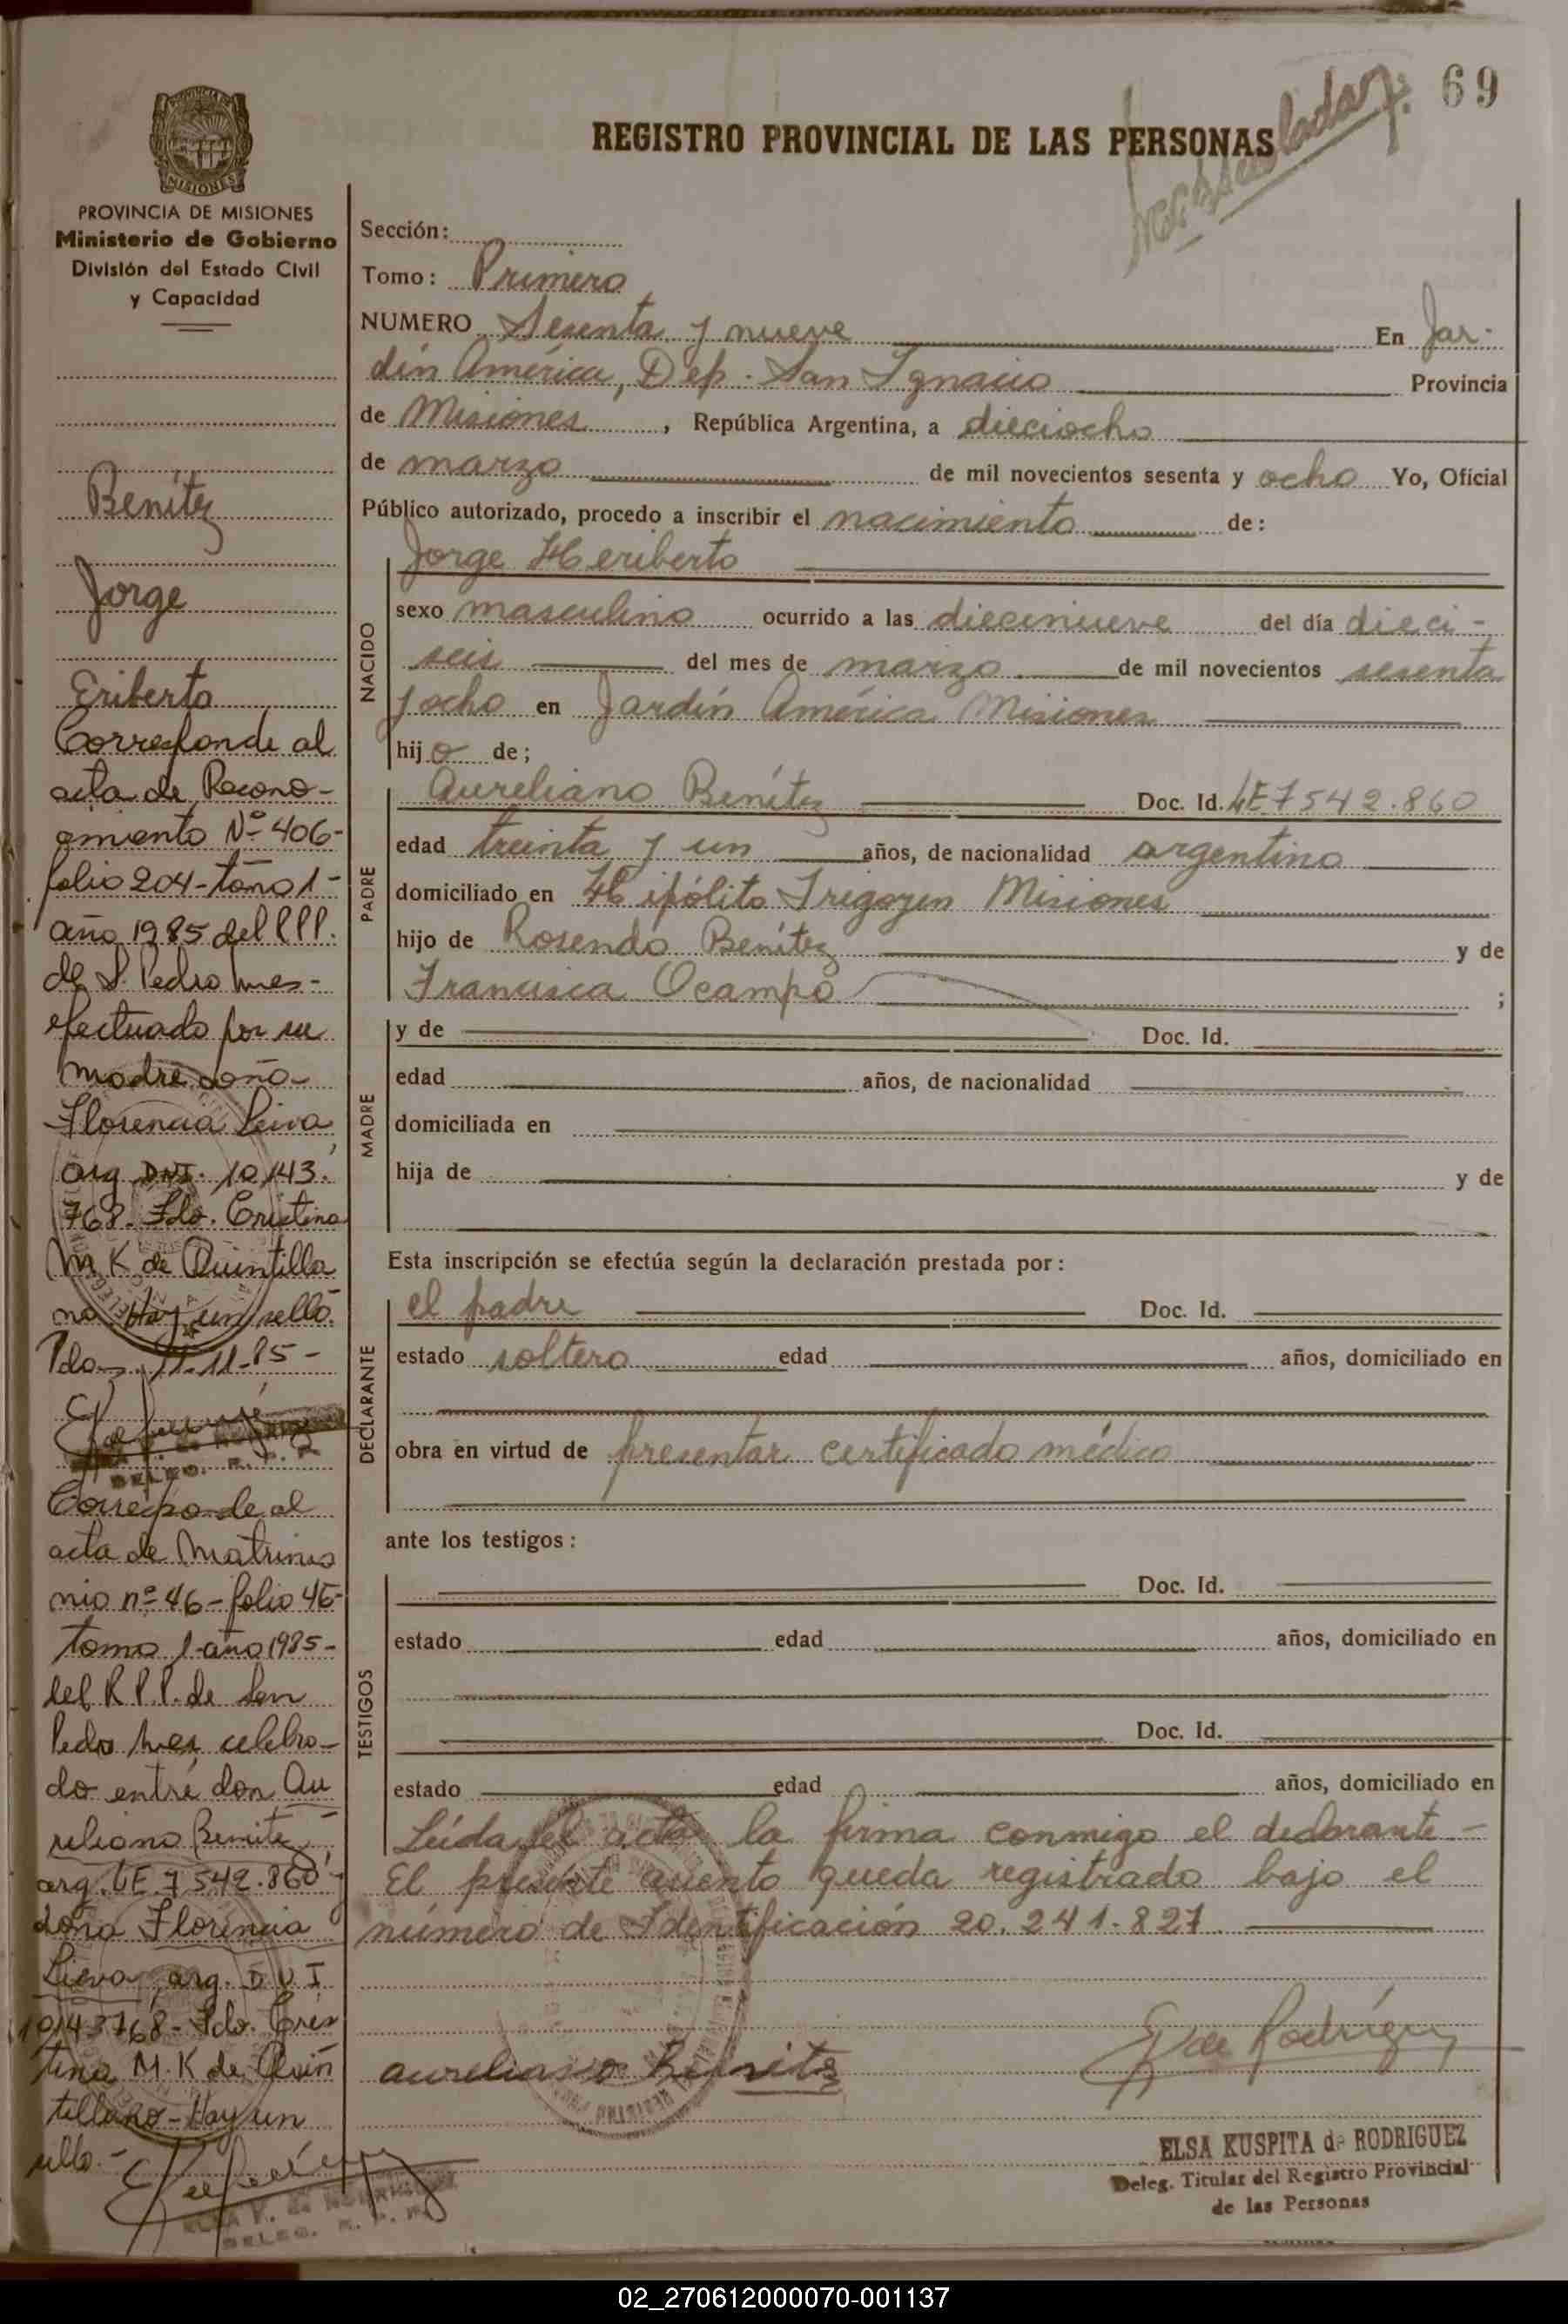 69
REGISTRO PROVINCIAL DE LAS PERSONAS
MISIONES
PROVINCIA DE MISIONES
Ministerio de Gobierno
División del Estado Civil
y Capacidad
Benítez
Jorge
Eriberto
Corresponde al
acta de Recono-
cimiento Nº 406-
folio 204 - tomo 1 -
año 1985 del RPP.
de S. Pedro Mnes -
efectuado por su
madre doña
Florencia Leiva
arg DNI. 10.143.
768. Fdo. Cristina
M K de Quintilla
no Hay un sello.
Pdas. 11-11-85 -
DELEG. R. P. P.
Corresponde al
acta de Matrimo
nio nº 46 - folio 46-
tomo 1 - año 1985 -
del R P.P. de San
Pedro Mnes celebra-
do entre don Au
reliano Benitez
arg. LE 7 542.860
doña Florencia
Lieva, arg. D N I
10143768 - Fdo. Cris
tina M. K de Quin
tillano - Hay un
sello. -
DELEG. R. P. P.
Sección:
Tomo: Primero
NUMERO Sesenta y nueve En Jar-
dín América, Dep. San Ignacio Provincia
de Misiones, República Argentina, a dieciocho
de marzo de mil novecientos sesenta y ocho Yo, Oficial
Público autorizado, procedo a inscribir el nacimiento de:
NACIDO
Jorge Heriberto
sexo masculino ocurrido a las diecinueve del día dieci-
seis del mes de marzo de mil novecientos sesenta
y ocho en Jardín América Misiones
hijo de;
PADRE
Aureliano Benítez Doc. Id. LE 7542.860
edad treinta y un años, de nacionalidad argentino
domiciliado en Hipólito Irigoyen Misiones
hijo de Rosendo Benítez y de
Francisca Ocampo ;
MADRE
y de Doc. Id.
edad años, de nacionalidad
domiciliada en
hija de y de
Esta inscripción se efectúa según la declaración prestada por:
DECLARANTE
el padre Doc. Id.
estado soltero edad años, domiciliado en
obra en virtud de presentar certificado médico
ante los testigos:
TESTIGOS
Doc. Id.
estado edad años, domiciliado en
Doc. Id.
estado edad años, domiciliado en
Leída el acta la firma conmigo el declarante -
El presente asiento queda registrado bajo el
número de Identificación 20.241.827
Aureliano Benitez
E K de Rodríguez
ELSA KUSPITA de RODRIGUEZ
Deleg. Titular del Registro Provincial
de las Personas
02_270612000070-001137